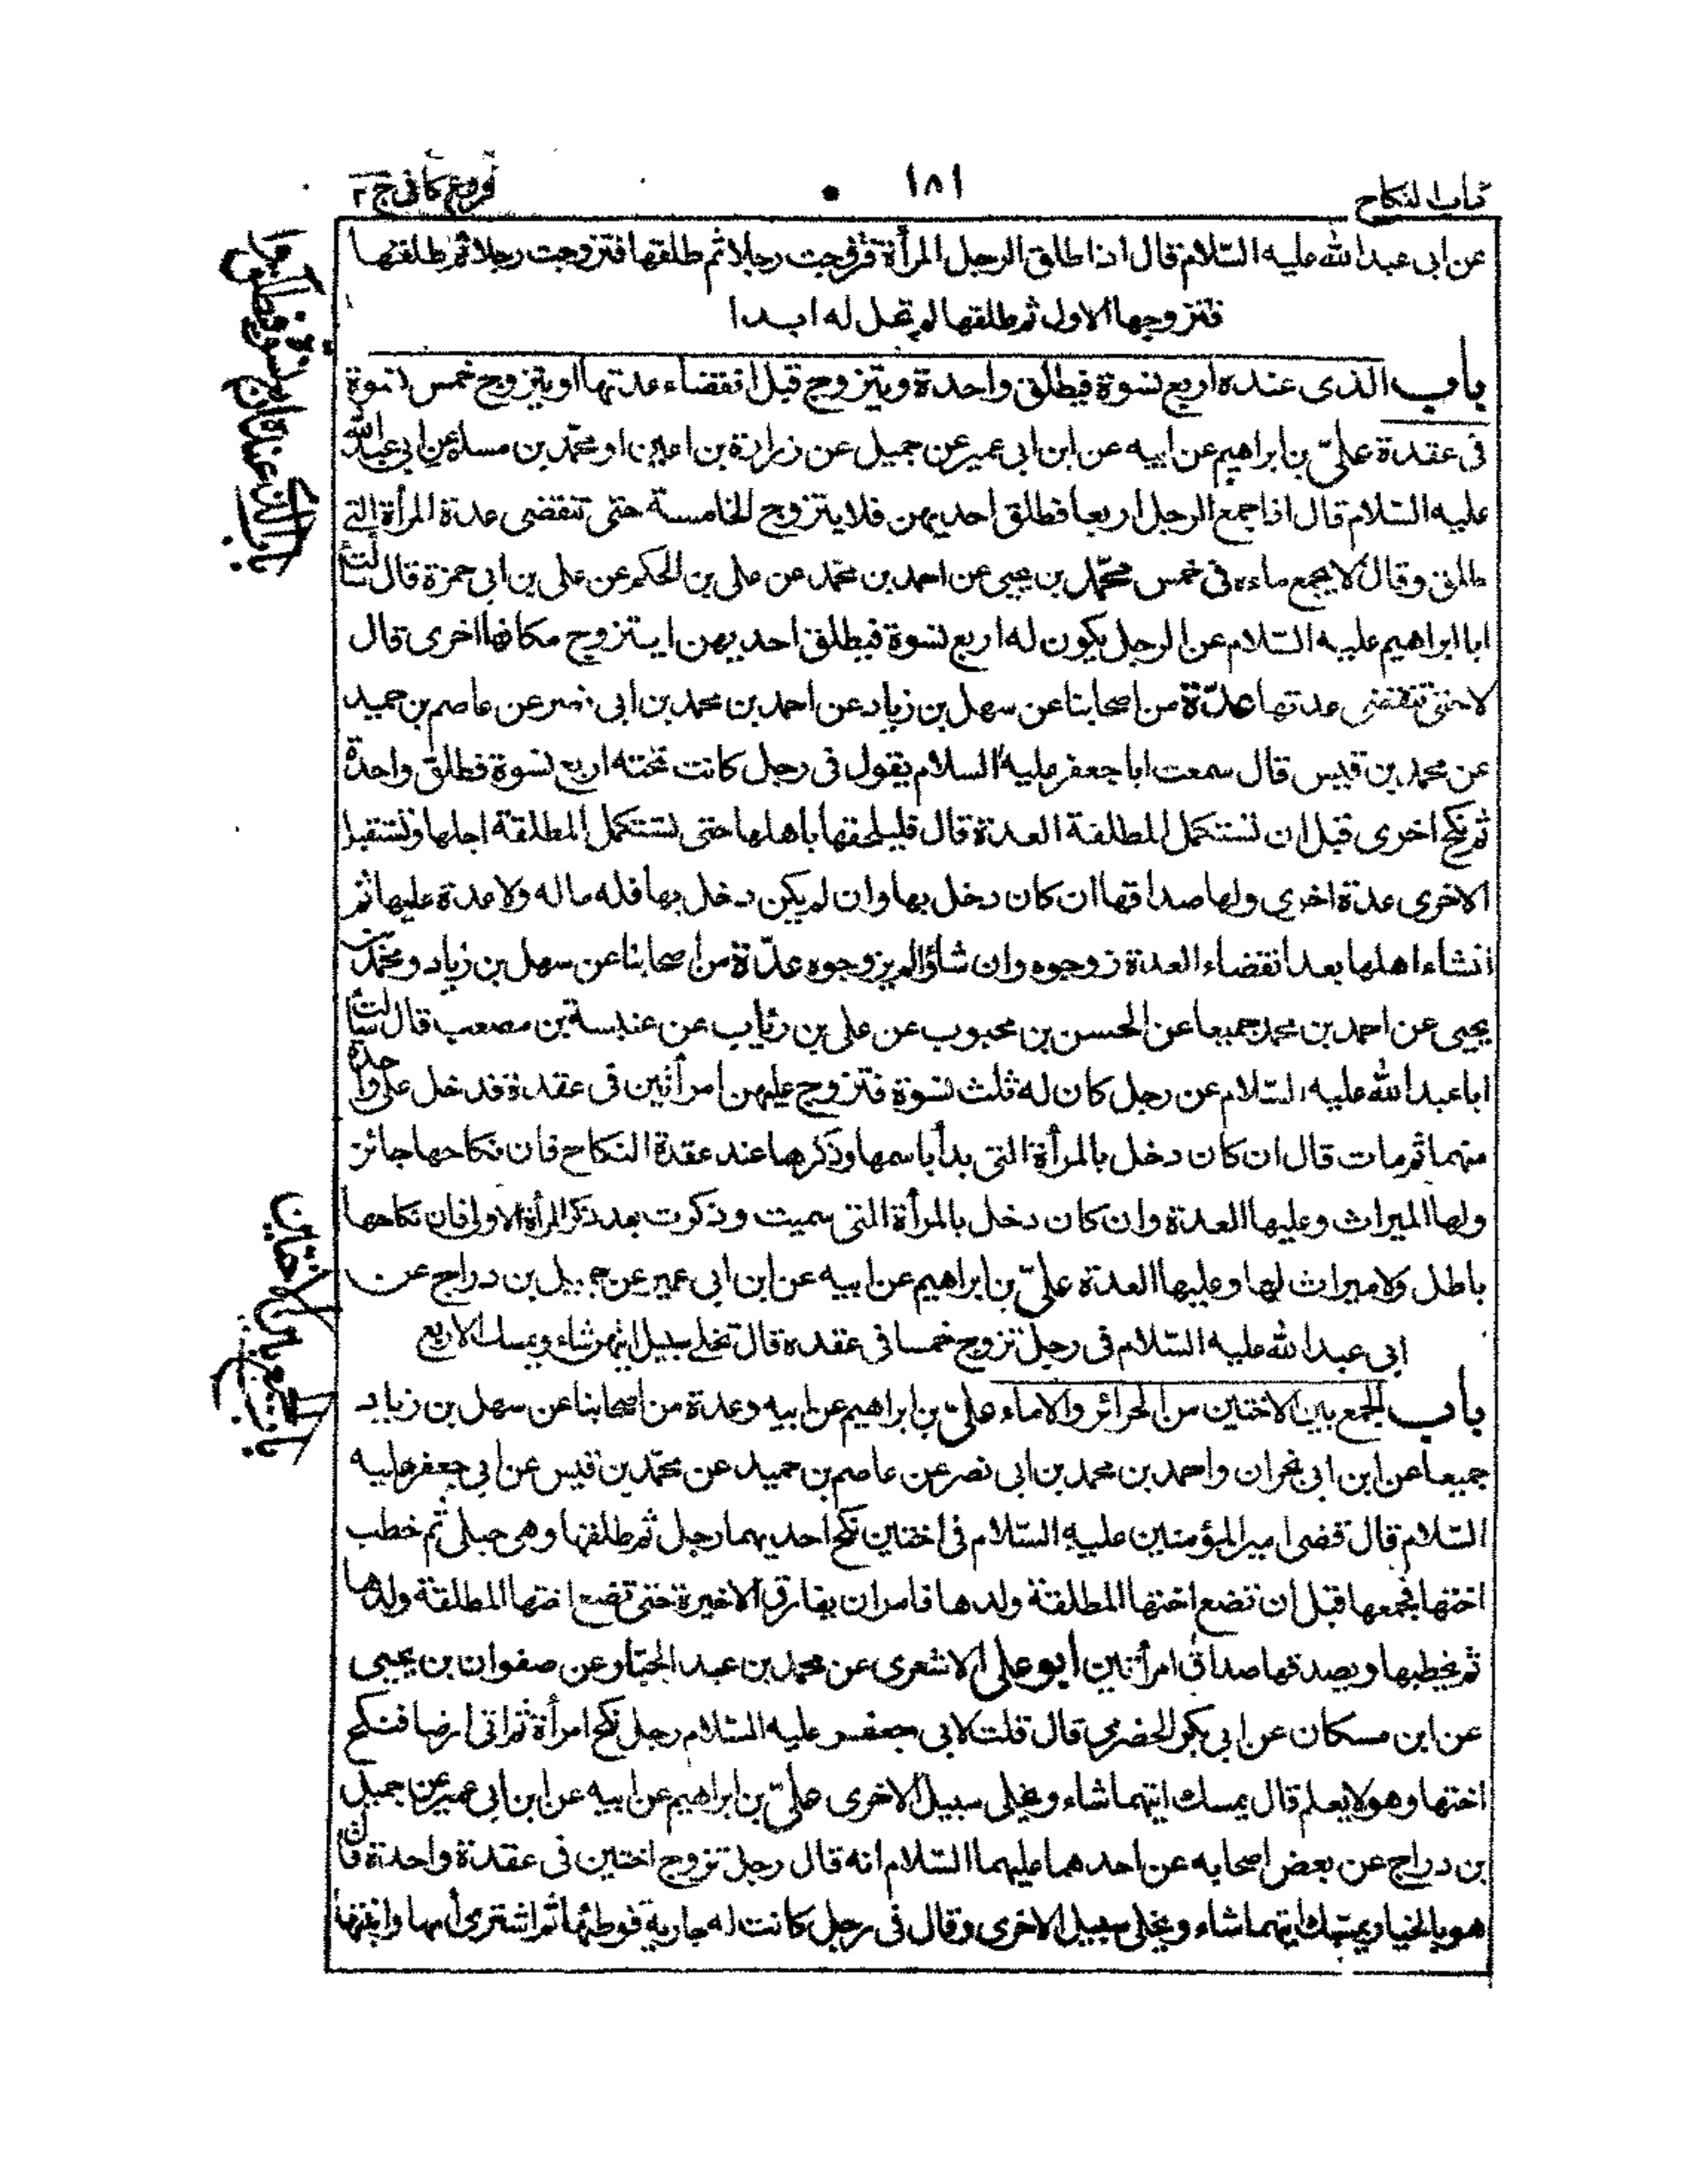 كتاب النكاح
١٨١
فروع كافى ج ٢
عن ابى عبد الله عليه السّلام قال اذا طلق الرجل المرأة فتزوجت رجلا ثم طلقها فتزوجت رجلا ثم طلقها
فتزوجها الاول ثم طلقها لم تحل له ابدا
باب الذى عنده اربع نسوة فيطلق واحدة ويتزوج قبل انقضاء عدتها او يتزوج خمس نسوة
فى عقدة علىّ بن ابراهيم عن ابيه عن ابن ابى عمير عن جميل عن زرارة بن اعين او محمّد بن مسلم عن ابى عبد الله
عليه السّلام قال اذا جمع الرجل اربعا فطلق احديهن فلا يتزوج الخامسة حتى تنقضى عدة المرأة التى
طلق وقال لا يجمع ماءه فى خمس محمّد بن يحيى عن احمد بن محمّد عن على بن الحكم عن على بن ابى حمزة قال سألت
ابا ابراهيم عليه السّلام عن الرجل يكون له اربع نسوة فيطلق احديهن ايتزوج مكانها اخرى قال
لا حتى تنقضى عدتها عدّة من اصحابنا عن سهل بن زياد عن احمد بن محمد بن ابى نصر عن عاصم بن حميد
عن محمد بن قيس قال سمعت ابا جعفر عليه السلام يقول فى رجل كانت تحته اربع نسوة فطلق واحدة
ثم نكح اخرى قبل ان تستكمل المطلقة العدة قال فليلحقها باهلها حتى تستكمل المطلقة اجلها وتستقبل
الاخرى عدة اخرى ولها صداقها ان كان دخل بها وان لم يكن دخل بها فله ماله ولا عدة عليها ثم
انشاء اهلها بعد انقضاء العدة زوجوه وان شاؤا لم يزوجوه عدّة من اصحابنا عن سهل بن زياد ومحمّد بن
يحيى عن احمد بن محمد جميعا عن الحسن بن محبوب عن على بن رئاب عن عنبسة بن مصعب قال سألت
ابا عبد الله عليه السّلام عن رجل كان له ثلث نسوة فتزوج عليهن امرأتين فى عقدة فدخل على واحدة
منهما ثم مات قال ان كان دخل بالمرأة التى بدأ باسمها وذكرها عند عقدة النكاح فان نكاحها جائز
ولها الميراث وعليها العدة وان كان دخل بالمرأة التى سميت وذكرت بعد ذكر المرأة الاولى فان نكاحها
باطل ولا ميراث لها وعليها العدة علىّ بن ابراهيم عن ابيه عن ابن ابى عمير عن جميل بن دراج عن
ابى عبد الله عليه السّلام فى رجل تزوج خمسا فى عقدة قال تخلى سبيل ايتهن شاء ويمسك الاربع
باب الجمع بين الاختين من الحرائر والاماء علىّ بن ابراهيم عن ابيه وعدة من اصحابنا عن سهل بن زياد
جميعا عن ابن ابى نجران واحمد بن محمد بن ابى نصر عن عاصم بن حميد عن محمّد بن قيس عن ابى جعفر عليه
السّلام قال قضى امير المؤمنين عليه السّلام فى اختين نكح احديهما رجل ثم طلقها وهى حبلى ثم خطب
اختها فجمعها قبل ان تضع اختها المطلقة ولدها فامر ان يفارق الاخيرة حتى تضع اختها المطلقة ولدها
ثم يخطبها ويصدقها صداق امرأتين ابو على الاشعرى عن محمد بن عبد الجبّار عن صفوان بن يحيى
عن ابن مسكان عن ابى بكر الحضرمى قال قلت لابى جعفر عليه السّلام رجل نكح امرأة ثم اتى ارضا فنكح
اختها وهو لا يعلم قال يمسك ايتهما شاء ويخلى سبيل الاخرى علىّ بن ابراهيم عن ابيه عن ابن ابى عمير عن جميل
بن دراج عن بعض اصحابه عن احدهما عليهما السّلام انه قال رجل تزوج اختين فى عقدة واحدة قال
هو بالخيار يمسك ايتهما شاء ويخلى سبيل الاخرى وقال فى رجل كانت له جارية فوطئها ثم اشترى امها وابنتها
باب الجمع بين الاختين